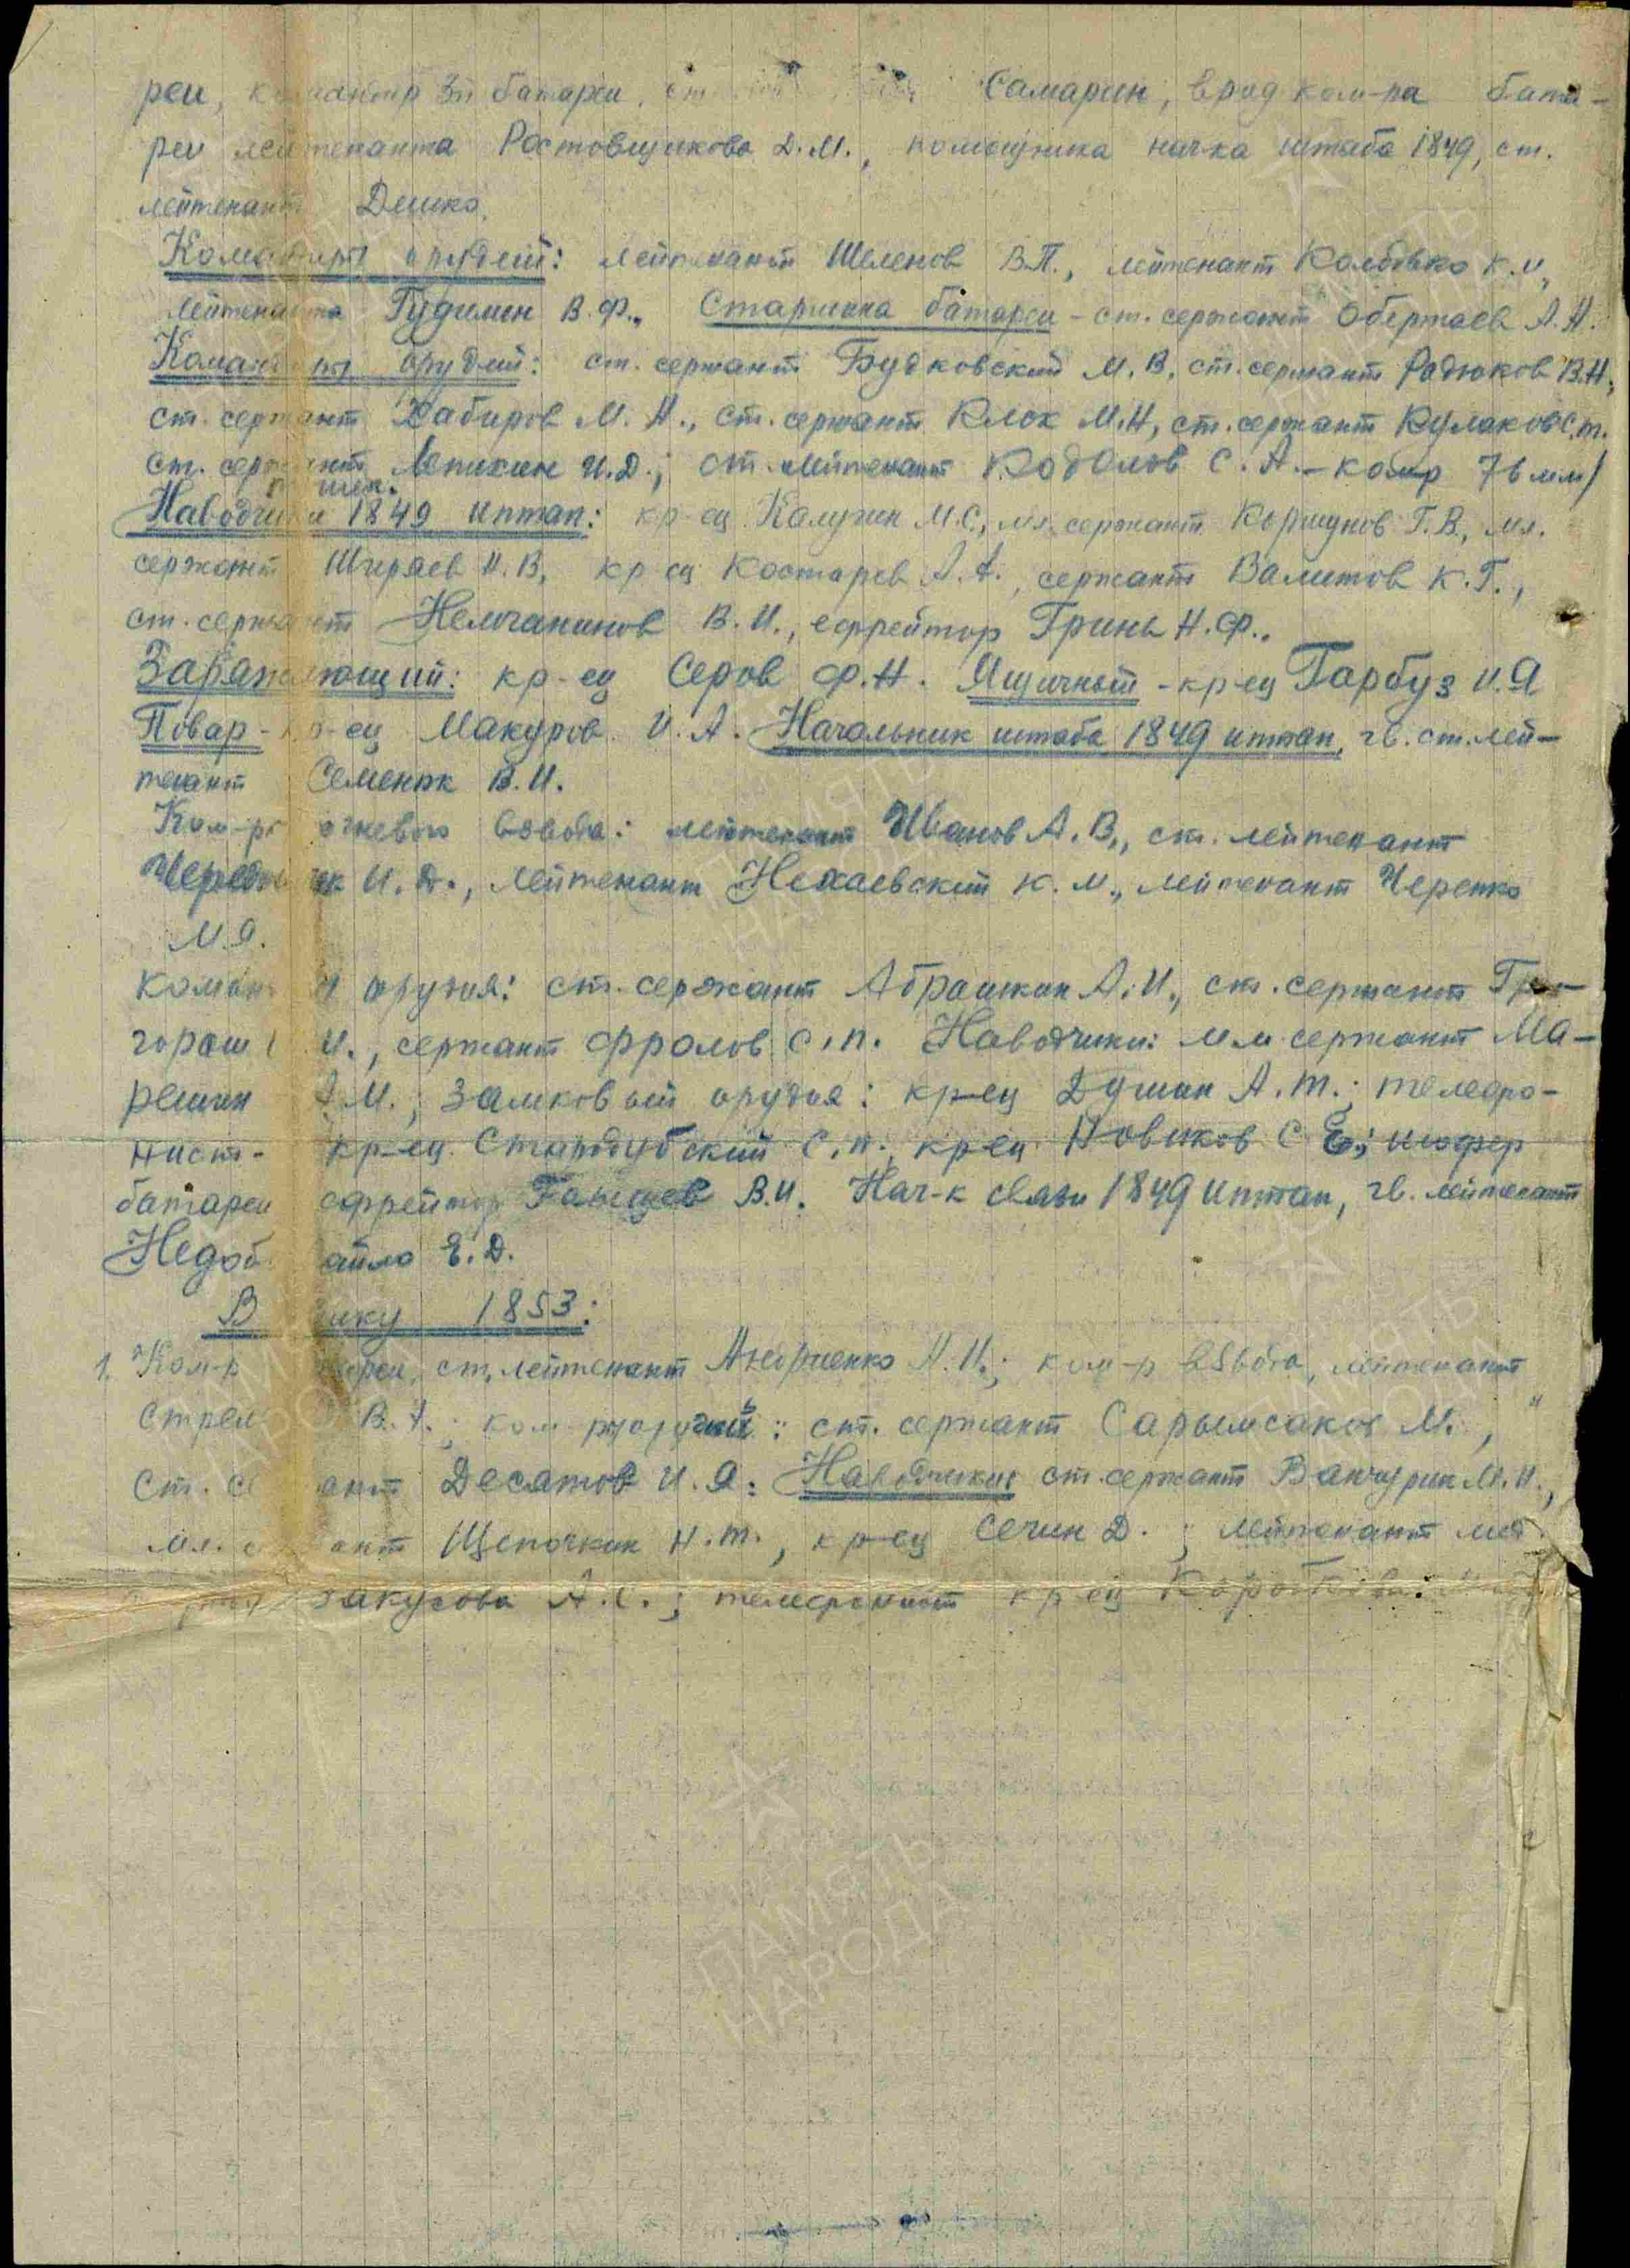 реи, командир 3й батареи, ст. Самарин, врид ком-ра бата-
реи лейтенанта Ростовщикова Д.М., помощника нач-ка штаба 1849, ст.
лейтенант Дешко.
Командиры орудий: лейтенант Шеленов В.П., лейтенант Колбовко К.И.,
лейтенанта Гудимин В.Ф., Старшина батареи - ст. сержант Обертаев А.Н.
Командиры орудий: ст. сержант Будковский М.В, ст. сержант Радюков В.Н.,
ст. сержант Хабиров М.Н., ст. сержант Клок М.Н, ст. сержант Кулаков С.т.
ст. сержант Лепихин И.Д.; ст. лейтенант Кодолов С.А. - ком-р 76 мм/
Наводчики 1849 иптап: кр-ец Калугин М.С., мл. сержант Коршунов Г.В., мл.
сержант Ширяев И.В, кр-ец Костарев А.А., сержант Валитов К.Г.,
ст. сержант Немчанинов В.И., ефрейтор Гринь Н.Ф..
Заряжающий: кр-ец Серов Ф.Н. Ящичный - кр-ец Гарбуз И.Я
Повар - кр-ец Макуров И.А. Начальник штаба 1849 иптап, гв. ст. лей-
тенант Семенюк В.И.
Ком-ры огневого взвода: лейтенант Иванов А.В., ст. лейтенант
И.Д., лейтенант Нехаевский К.М., лейтенант Черенко
М.Я.
орудия: ст. сержант Абрашкин А.И., ст. сержант Гри-
гораш И., сержант Фролов С.П. Наводчики: мл сержант Ма-
решин А.М.; замковый орудия: кр-ец Душин А.т.; телефо-
нист - кр-ец Стародубский С.п., кр-ец Новиков С.Е.; шофер
батареи ефрейтор В.И. Нач-к связи 1849 иптап, гв. лейтенант
Недоб айло Е.Д.
В 1853:
1. Ком-р батареи, ст. лейтенант Андриенко Н.И.; ком-р взвода, лейтенант
В.А.; ком-ры орудий: ст. сержант Сарымсаков М.,
Ст. сержант Десятов И.Я. Наводчики: ст. сержант Ванчурин М.И.,
мл. сержант Щепочкин Н.т., кр-ец Сечин Д.; лейтенант мед.
А.С.; телефонист кр-ец
ПАМЯТЬ
НАРОДА